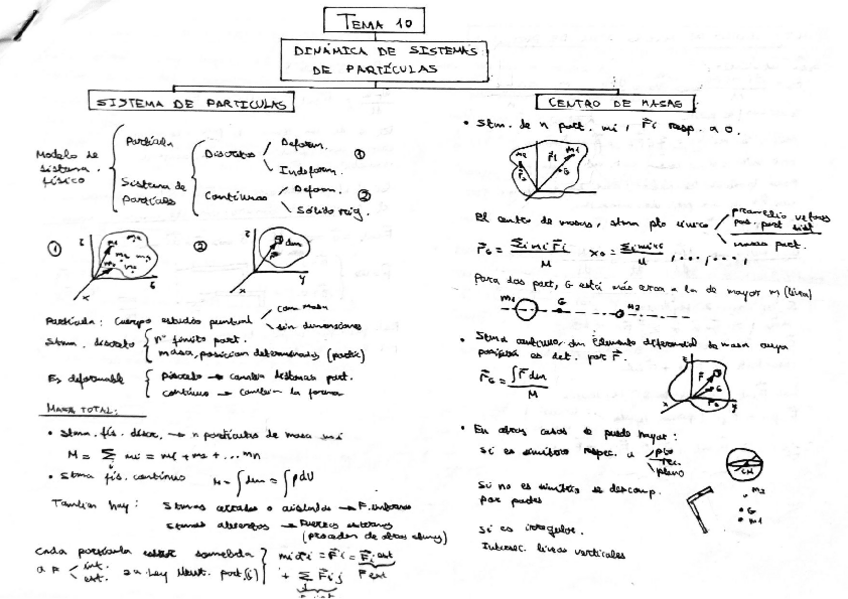 TEMA 10
DINÁMICA DE SISTEMAS
DE PARTÍCULAS
SISTEMA DE PARTICULAS
Modelo de
sistema
físico
Partícula
Sistema de
partículas
Discretos
Deform.
Indeform.
①
Continuos
Deform.
Sólido ríg.
②
①
z
m1
m2
x
②
z
dm
x
y
Partícula: Cuerpo estudio puntual
con masa
sin dimensiones
Stma. discreto
nº finito part.
masa, posición determinadas (partic)
Es deformable
Discreto → cambia distancias part.
continuo → cambia la forma
MASA TOTAL:
• Stma. fís. discr. → n partículas de masa mi
M = Σ mi = m1 + m2 + ... mn
i
• Stma fís. continuo M = ∫dm = ∫ρdV
También hay: Stmas cerrados o aislados → F. internas
stmas abiertos → Fuerzas externas
Cada partícula sometida
a F
int.
ext.
2ª Ley Newt. part (i)
CENTRO DE MASAS
• Stm. de n part. mi, r⃗i resp. a 0.
m2
r⃗1
m1
G
El centro de masas, stma pto único
promedio vectores
pos. part sist
masa part.
r⃗G = Σi mi r⃗i / M
Para dos part, G está más cerca a la de mayor m (línea)
m1
G
m2
• Stma continuo dm elemento diferencial de masa cuya
posición es det. por r⃗.
r⃗G = ∫r⃗ dm / M
x
y
• En otros casos se puede hayar:
Si es simétrico respec. a
pto
rec.
plano
CM
Si no es simétrico se descomp.
por partes
m2
G
m1
Si es irregular.
Intersec. líneas verticales